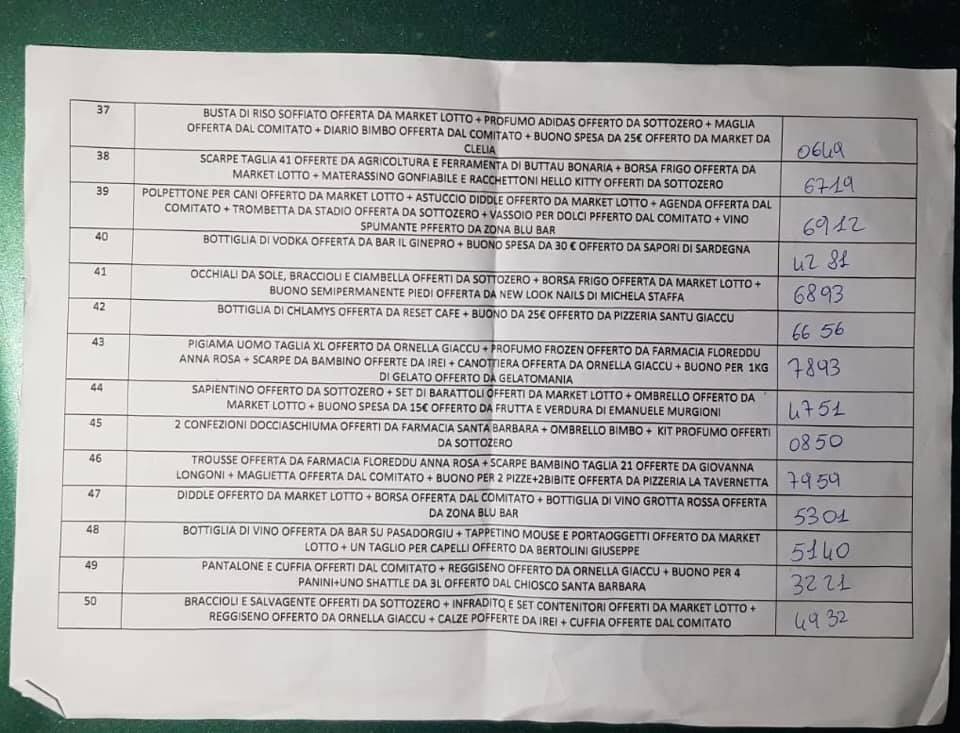 37
BUSTA DI RISO SOFFIATO OFFERTA DA MARKET LOTTO + PROFUMO ADIDAS OFFERTO DA SOTTOZERO + MAGLIA
OFFERTA DAL COMITATO + DIARIO BIMBO OFFERTA DAL COMITATO + BUONO SPESA DA 25€ OFFERTO DA MARKET DA
CLELIA
0649
38
SCARPE TAGLIA 41 OFFERTE DA AGRICOLTURA E FERRAMENTA DI BUTTAU BONARIA + BORSA FRIGO OFFERTA DA
MARKET LOTTO + MATERASSINO GONFIABILE E RACCHETTONI HELLO KITTY OFFERTI DA SOTTOZERO
6719
39
POLPETTONE PER CANI OFFERTO DA MARKET LOTTO + ASTUCCIO DIDDLE OFFERTO DA MARKET LOTTO + AGENDA OFFERTA DAL
COMITATO + TROMBETTA DA STADIO OFFERTA DA SOTTOZERO + VASSOIO PER DOLCI PFFERTO DAL COMITATO + VINO
SPUMANTE PFFERTO DA ZONA BLU BAR
6912
40
BOTTIGLIA DI VODKA OFFERTA DA BAR IL GINEPRO + BUONO SPESA DA 30 € OFFERTO DA SAPORI DI SARDEGNA
42 81
41
OCCHIALI DA SOLE, BRACCIOLI E CIAMBELLA OFFERTI DA SOTTOZERO + BORSA FRIGO OFFERTA DA MARKET LOTTO +
BUONO SEMIPERMANENTE PIEDI OFFERTA DA NEW LOOK NAILS DI MICHELA STAFFA
6893
42
BOTTIGLIA DI CHLAMYS OFFERTA DA RESET CAFE + BUONO DA 25€ OFFERTO DA PIZZERIA SANTU GIACCU
66 56
43
PIGIAMA UOMO TAGLIA XL OFFERTO DA ORNELLA GIACCU + PROFUMO FROZEN OFFERTO DA FARMACIA FLOREDDU
ANNA ROSA + SCARPE DA BAMBINO OFFERTE DA IREI + CANOTTIERA OFFERTA DA ORNELLA GIACCU + BUONO PER 1KG
DI GELATO OFFERTO DA GELATOMANIA
7893
44
SAPIENTINO OFFERTO DA SOTTOZERO + SET DI BARATTOLI OFFERTI DA MARKET LOTTO + OMBRELLO OFFERTO DA
MARKET LOTTO + BUONO SPESA DA 15€ OFFERTO DA FRUTTA E VERDURA DI EMANUELE MURGIONI
4751
45
2 CONFEZIONI DOCCIASCHIUMA OFFERTI DA FARMACIA SANTA BARBARA + OMBRELLO BIMBO + KIT PROFUMO OFFERTI
DA SOTTOZERO
0850
46
TROUSSE OFFERTA DA FARMACIA FLOREDDU ANNA ROSA + SCARPE BAMBINO TAGLIA 21 OFFERTE DA GIOVANNA
LONGONI + MAGLIETTA OFFERTA DAL COMITATO + BUONO PER 2 PIZZE+2BIBITE OFFERTA DA PIZZERIA LA TAVERNETTA
7959
47
DIDDLE OFFERTO DA MARKET LOTTO + BORSA OFFERTA DAL COMITATO + BOTTIGLIA DI VINO GROTTA ROSSA OFFERTA
DA ZONA BLU BAR
5301
48
BOTTIGLIA DI VINO OFFERTA DA BAR SU PASADORGIU + TAPPETINO MOUSE E PORTAOGGETTI OFFERTO DA MARKET
LOTTO + UN TAGLIO PER CAPELLI OFFERTO DA BERTOLINI GIUSEPPE
5140
49
PANTALONE E CUFFIA OFFERTI DAL COMITATO + REGGISENO OFFERTO DA ORNELLA GIACCU + BUONO PER 4
PANINI+UNO SHATTLE DA 3L OFFERTO DAL CHIOSCO SANTA BARBARA
3221
50
BRACCIOLI E SALVAGENTE OFFERTI DA SOTTOZERO + INFRADITO E SET CONTENITORI OFFERTI DA MARKET LOTTO +
REGGISENO OFFERTO DA ORNELLA GIACCU + CALZE POFFERTE DA IREI + CUFFIA OFFERTE DAL COMITATO
4932